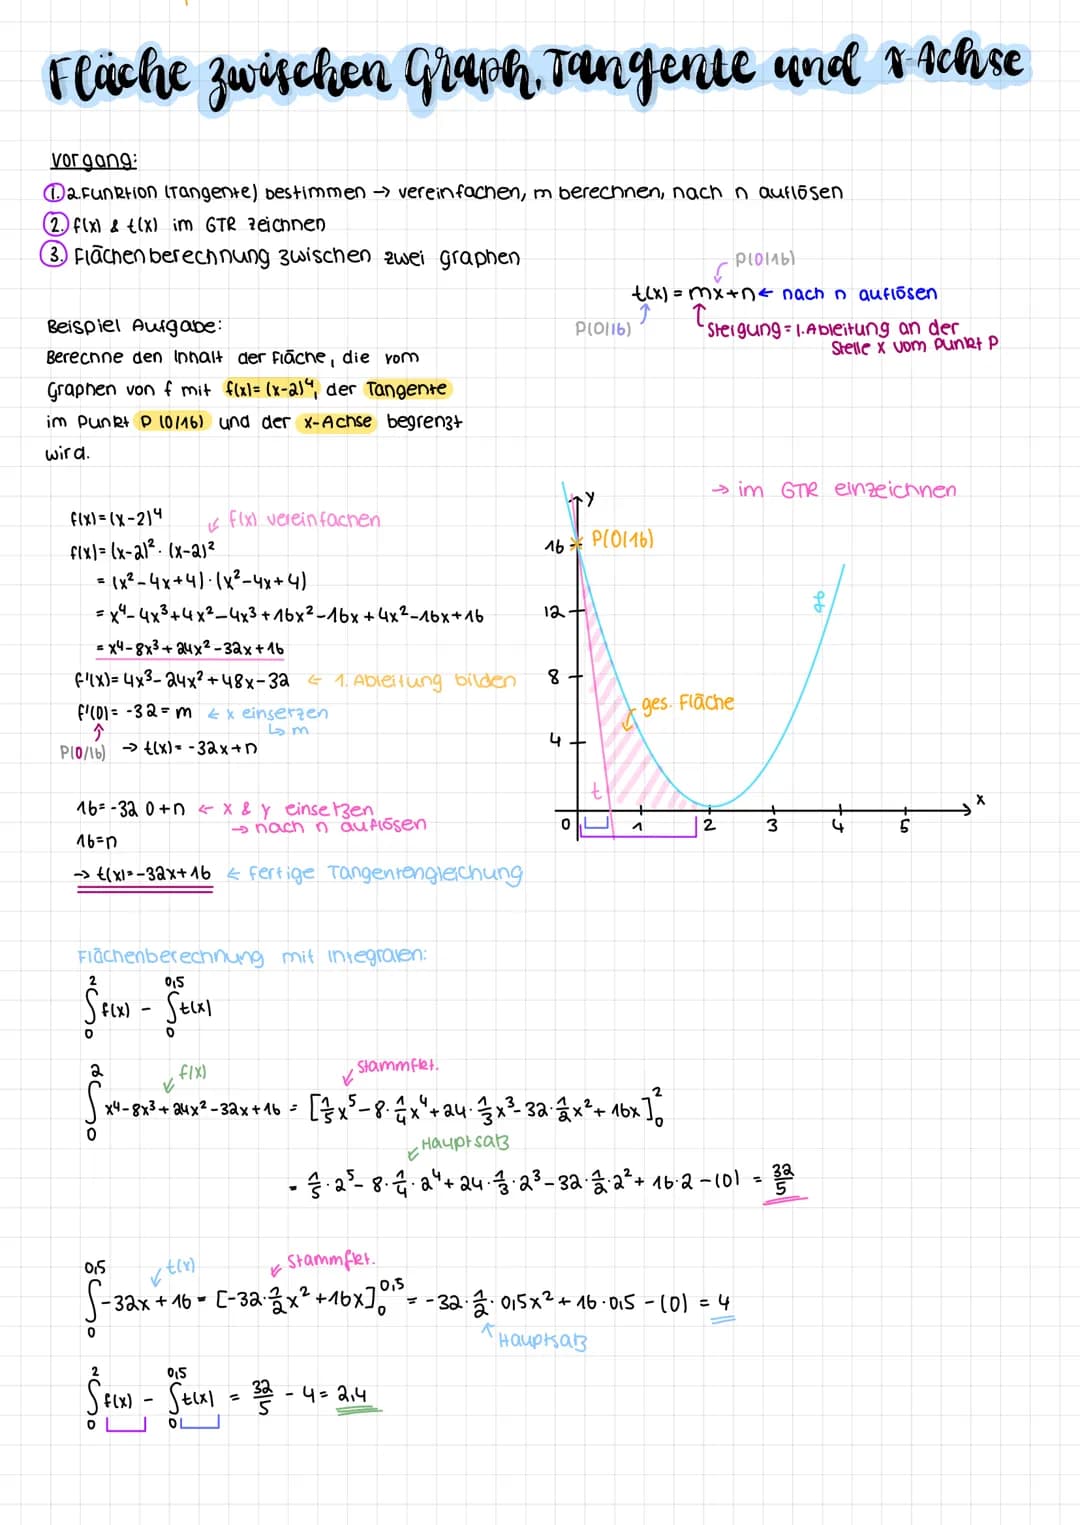 Fläche zwischen Graph, Tangente und x-Achse
Vorgang:
1. 2. Funktion (Tangente) bestimmen → vereinfachen, m berechnen, nach n auflösen
2. f(x) & t(x) im GTR zeichnen
3. Flächenberechnung zwischen zwei graphen
P(0|16)
t(x) = mx+n ← nach n auflösen
P(0|16)
Steigung = 1. Ableitung an der
Stelle x vom Punkt P
Beispiel Aufgabe:
Berechne den Inhalt der Fläche, die vom
Graphen von f mit f(x)= (x-2)⁴, der Tangente
im Punkt P (0/16) und der x-Achse begrenzt
wird.
→ im GTR einzeichnen
f(x)= (x-2)⁴ ↙ f(x) vereinfachen
f(x)= (x-2)² · (x-2)²
= (x²-4x+4) · (x²-4x+4)
= x⁴-4x³+4x²-4x³+16x²-16x+4x²-16x+16
= x⁴-8x³+24x²-32x+16
f'(x)= 4x³-24x²+48x-32 ← 1. Ableitung bilden
f'(0)= -32 = m ← x einsetzen
↳ m
P(0/16) → t(x)= -32x+n
16= -32·0+n ← x & y einsetzen
→ nach n auflösen
16=n
→ t(x)=-32x+16 ← fertige Tangentengleichung
y
16 P(0|16)
12
f
8
ges. Fläche
4
t
x
0 1 2 3 4 5
Flächenberechnung mit Integralen:
∫₀² f(x) - ∫₀^0,5 t(x)
f(x) Stammfkt.
∫₀² x⁴-8x³+24x²-32x+16 = [1/5 x⁵-8·1/4 x⁴+24·1/3 x³-32·1/2 x²+16x]₀²
Hauptsatz
= 1/5·2⁵-8·1/4·2⁴+24·1/3·2³-32·1/2·2²+16·2-(0) = 32/5
t(x) Stammfkt.
∫₀^0,5 -32x+16 = [-32·1/2 x²+16x]₀^0,5 = -32·1/2·0,5x²+16·0,5-(0) = 4
Hauptsatz
∫₀² f(x) - ∫₀^0,5 t(x) = 32/5 - 4 = 2,4